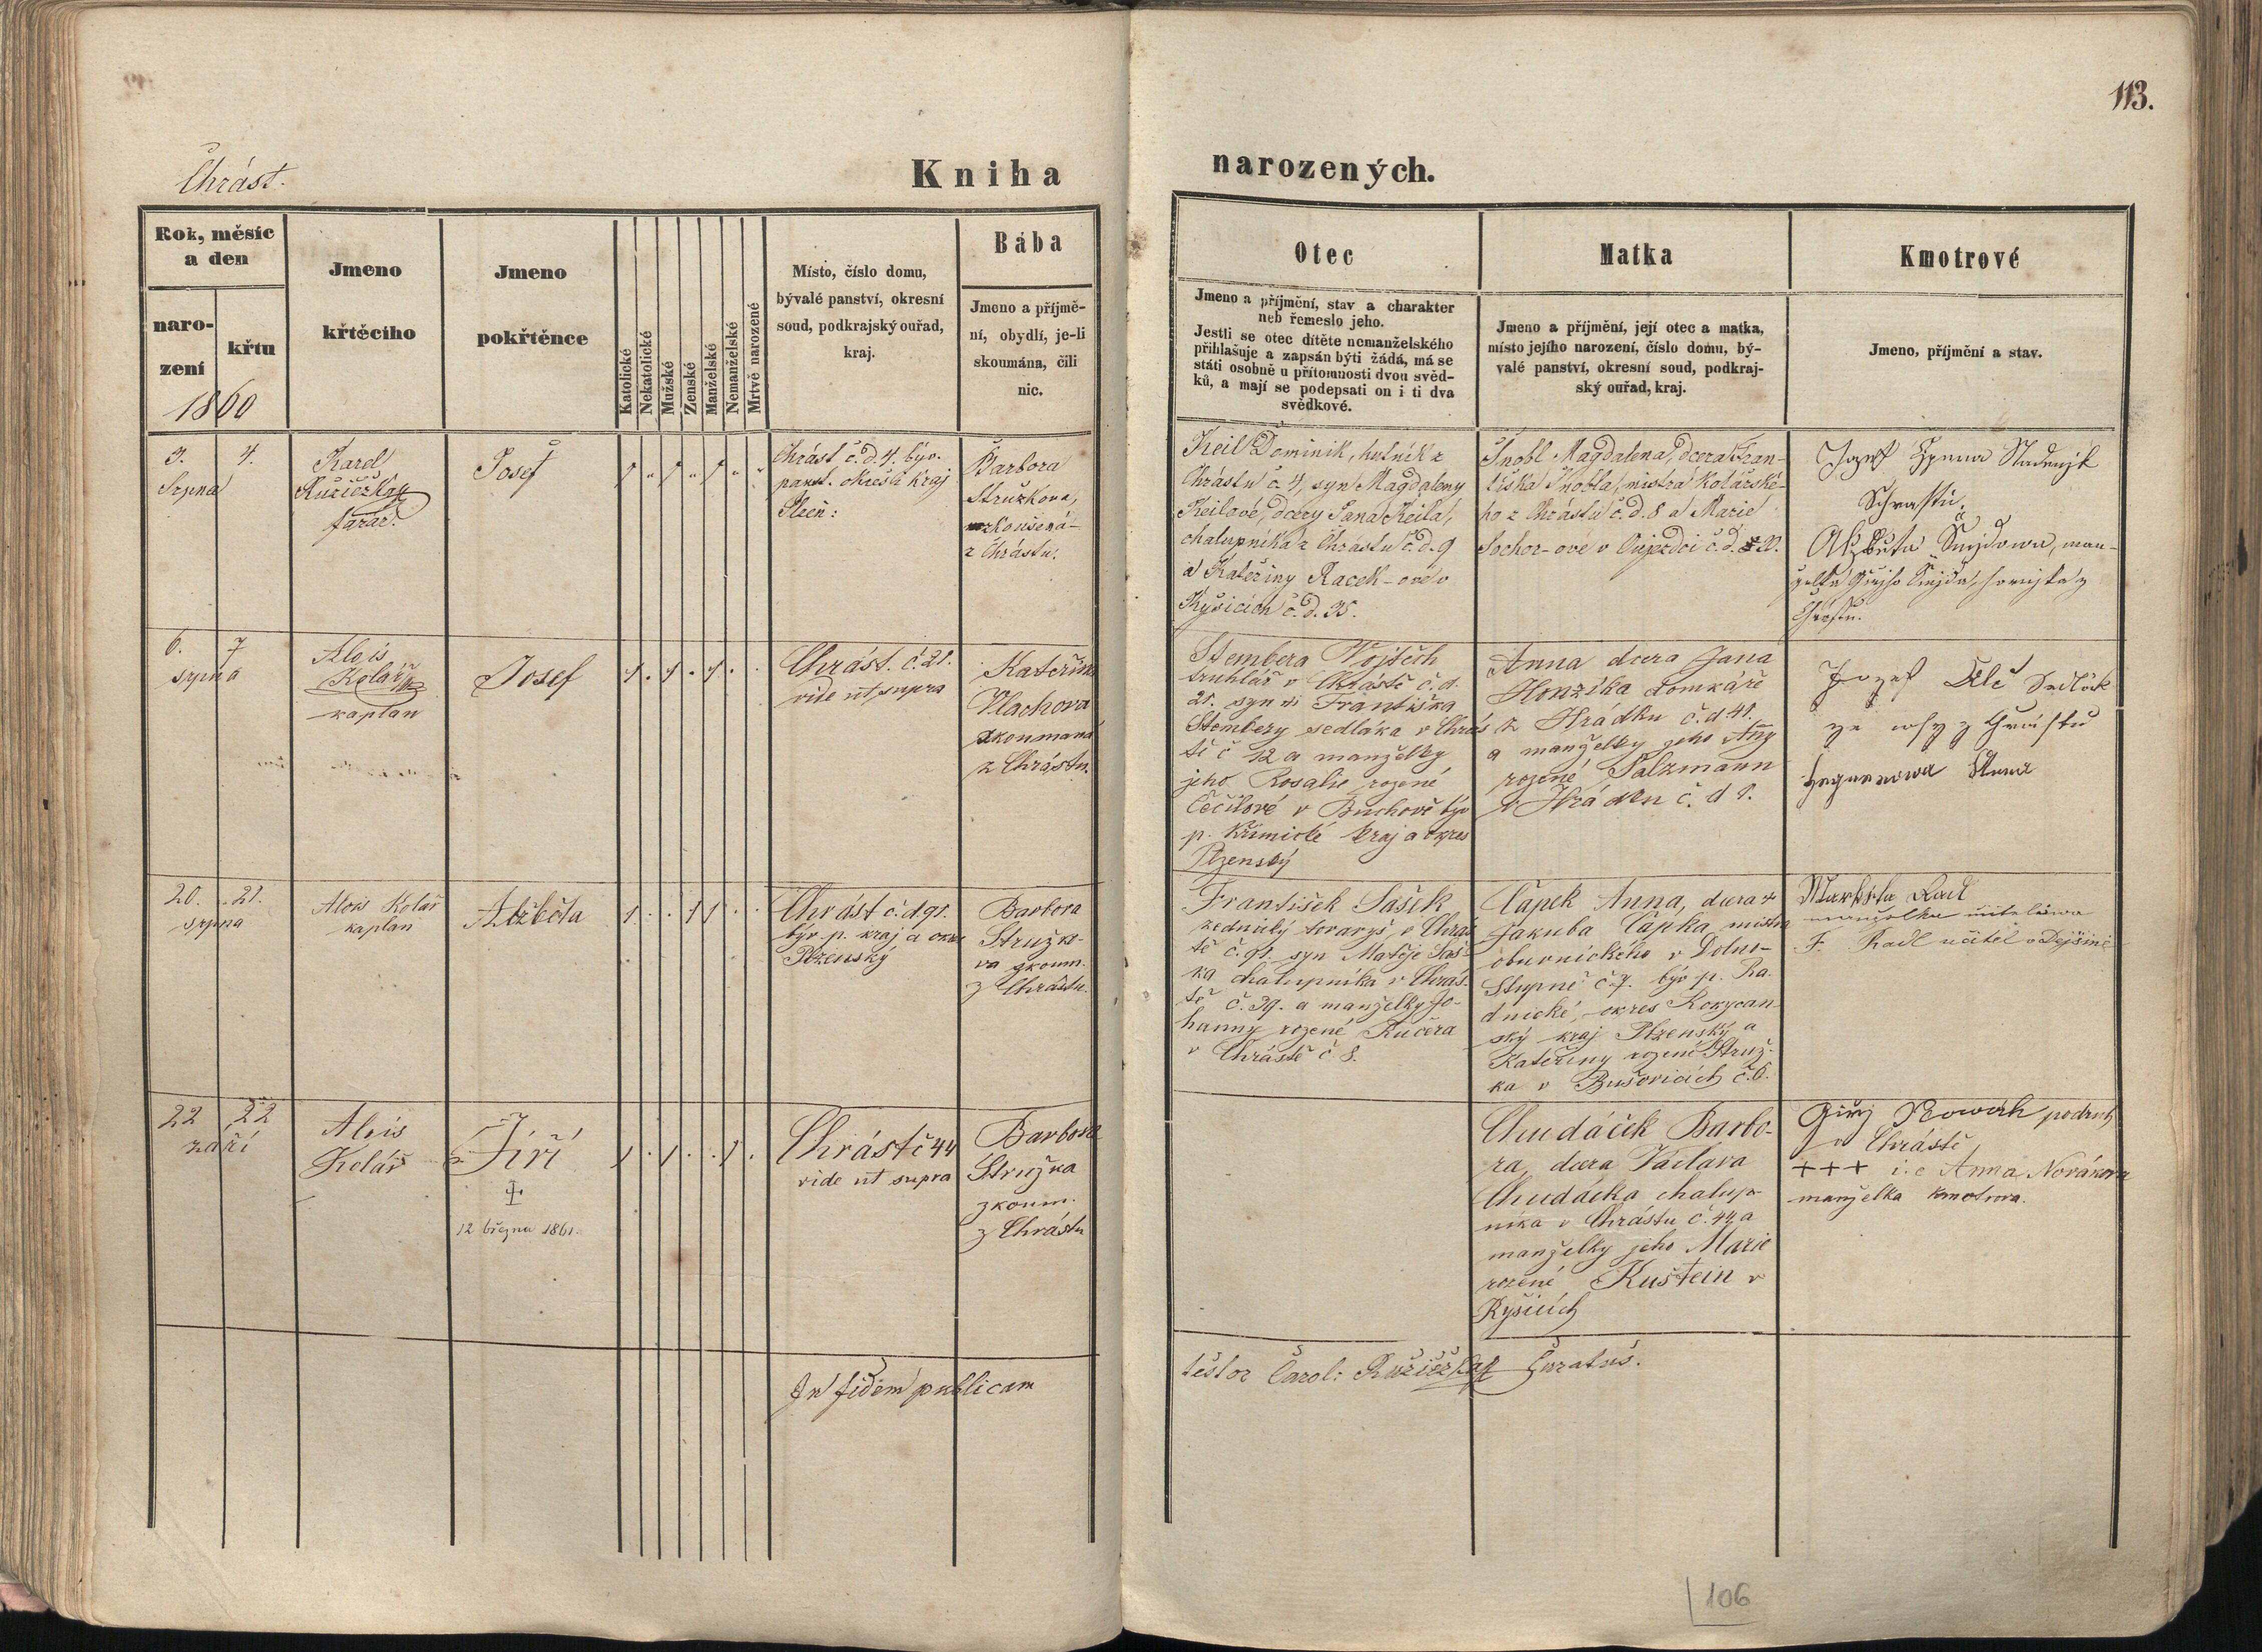 113.
Chrást.
Kniha narozených.
Rok, měsíc
a den
naro-
zení
křtu
1860
Jmeno
křtěcího
Jmeno
pokřtěnce
Katolické
Nekatolické
Mužské
Zenské
Manželské
Nemanželské
Mrtvě narozené
Místo, číslo domu,
bývalé panství, okresní
soud, podkrajský ouřad,
kraj.
Bába
Jmeno a příjmě-
ní, obydlí, je-li
skoumána, čili
nic.
Otec
Jmeno a příjmění, stav a charakter
neb řemeslo jeho.
Jestli se otec dítěte nemanželského
přihlašuje a zapsán býti žádá, má se
státi osobně u přítomnosti dvou svěd-
ků, a mají se podepsati on i ti dva
svědkové.
Matka
Jmeno a příjmění, její otec a matka,
místo jejího narození, číslo domu, bý-
valé panství, okresní soud, podkraj-
ský ouřad, kraj.
Kmotrové
Jmeno, příjmění a stav.
3. 4.
Srpna
Karel
Růžička
farář.
Josef
1 " 1 " 1 " "
Chrást č. d. 4. býv.
panst. okres a kraj
Plzeň:
Barbora
Stružkova,
zkoušená
z Chrástu.
Keil Dominik, hutník z
Chrástu č. 4, syn Magdaleny
Keilové, dcery Jana Keila,
chalupníka z Chrástu č. d. 9
a Kateřiny Racek-ové v
Kyšicích č. d. 35.
Šnobl Magdalena, dcera Fran-
tiška Šnobla, mistra kolářské-
ho z Chrástu č. d. 8 a Marie
Sochor-ové v Oujezdci č. d.
Jozef
Alžběta Šnejdowa, man-
6. 7
srpna
Alois
Kolář
kaplan
Josef
1 . 1 . 1 . .
Chrást. č. 21.
vide ut supra
Kateřina
Vlachova
zkoumaná
z Chrástu.
Stembera Wojtěch
truhlář v Chrástě č. d.
21. syn Františka
Stembery sedláka v Chrás
tě č 12 a manželky
jeho Rosalie rozené
v Buchově býv
p. Křimické kraj a okres
Plzenský
Anna dcera Jana
Honzíka domkáře
z Hrádku č. d 41.
a manželky jeho Any
rozené Salzmann
v Hrádku č. d 1.
Jozef
Anna
20. 21.
srpna
Alois Kolář
kaplan
Alžběta
1 . . 1 1 . .
Chrást č. d. 91.
býv. p. kraj a okres
Plzenský
Barbora
Stružko-
va zkoum.
z Chrástu.
František Sašek
zednický tovaryš v Chrás
tě č. 91. syn Matěje Saš-
ka chalupníka v Chrás-
tě č. 39. a manželky Jo-
hanny rozené Kučera
v Chrástě č. 8.
Čapek Anna, dcera
Jakuba Čapka mistra
obuvnického v Dolno-
Stupně č. 7. býv p. Ra-
dnické, okres Rokycan-
ský kraj Plzenský a
Kateřiny rozené Struž-
ka v Bušovicích č. 6.
Markéta Radl
manželka učitelova
F. Radl učitel v Dejšině
22 22
září
Alois
Kolář
Jiří
12 března 1861.
1 . 1 . . 1 .
Chrást č 44
vide ut supra
Barbora
Stružka
zkoum.
z Chrástu
Chudáček Barbo-
ra, dcera Václava
Chudáčka chalup-
níka v Chrástu č. 44 a
manželky jeho Marie
rozené Kuštein v
Kyšicích
Giřj Nowák podruh
v Chrástě
+++ i. e Anna Nováková
manželka kmotrova.
In fidem publicam
testor Carol: Růžička Curatus.
106